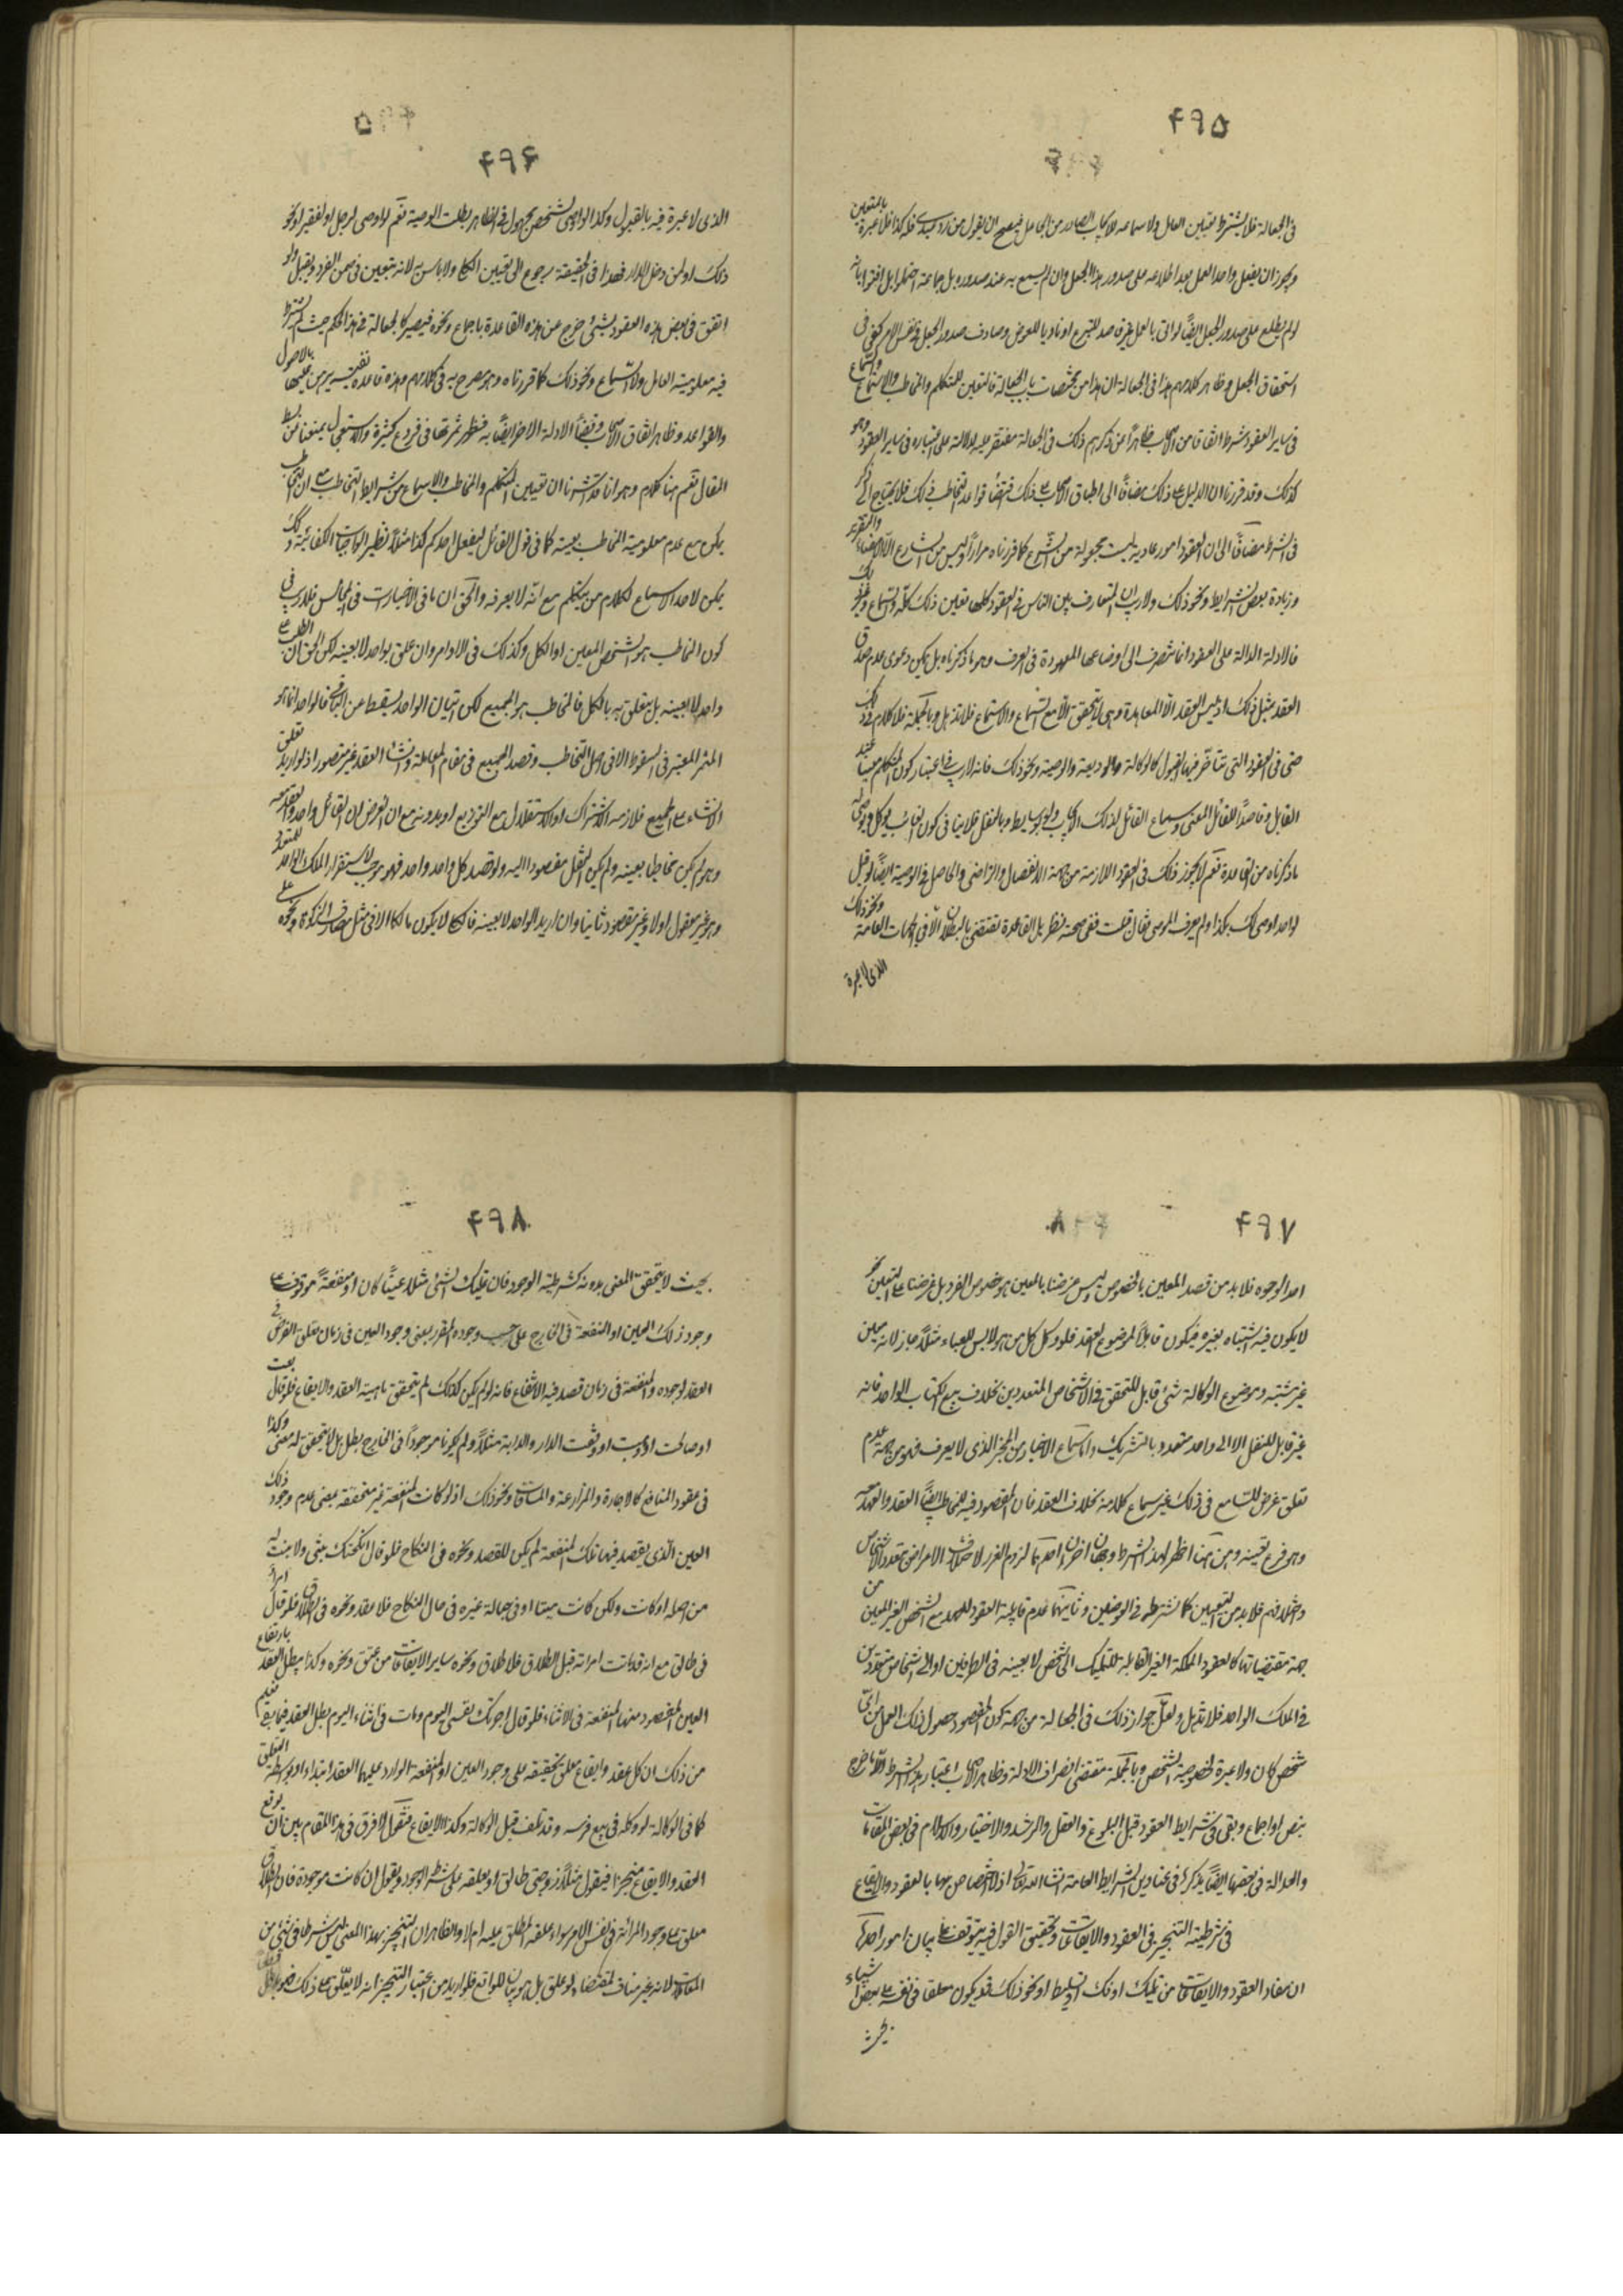 ۴۹۵
فی الجعالة فلا یشترط تعیین العامل ولا سماعه للایجاب الصادر من الجاعل فیصح ان یقول من رد عبدی فله کذا فلا عبرة بالتعیین
ویجوز ان یفعل واحد العمل بعد اطلاعه علی صدور هذا الجعل وان لم یسمع به عند صدوره بل جماعة
لو لم یطلع علی صدور الجعل ایضًا واتی بالعمل غیر قاصد للتبرع او ناویا للعوض وصادف صدور الجعل فی نفس الامر کفی فی
استحقاق الجعل وظاهر کلامهم هذا فی الجعالة ان هذا من مختصات باب الجعالة فالتعیین للمتکلم والمخاطب والاستماع والسماع
فی سایر العقود شرط اتفاقا من الاصحاب ظاهرا من ذکرهم ذلک فی الجعالة مفتقر علیه دلالة علی اعتباره فی سایر العقود وهو
کذلک وقد قررنا ان الدلیل علی ذلک مضافًا الی اطباق الاصحاب علی ذلک اقتضاء قواعد التخاطب فی ذلک فلا یحتاج الی ذکر
فی الشرط مضافًا الی ان العقود امور عادیة لیست مجعولة من الشرع کما قررناه مرارًا ولیس من الشارع الا الامضاء والتقریر
وزیادة بعض الشرایط ونحو ذلک ولا ریب ان المتعارف بین الناس فی العقود کلها تعیین ذلک کله والسماع وغیر ذلک
فالادلة الدالة علی العقود انما تنصرف الی اوضاعها المعهودة فی العرف وهو ما ذکرناه بل یمکن دعوی عدم صدق
العقد بمثل ذلک اذ لیس العقد الا المعاهدة وهی لا تتحقق الا مع السماع والاستماع فلا تذهل وبالجملة فلا کلام فی ذلک
حتی فی العقود التی یتأخر فیها القبول کالوکالة والودیعة والوصیة ونحو ذلک فانه لا ریب فی اعتبار کون المتکلم معینا عند
القابل وقاصدًا للقائل المعنی وسماع القائل لذلک الایجاب ولو بوسایط وبالنقل فلا ینافی کون الغائب یوکل ویوصی له
ما ذکرناه من القاعدة نعم لا یجوز ذلک فی العقود اللازمة من جهة الانفصال والتراضی والحاصل فی الوصیة ایضًا لو قیل
لواحد اوصی لک بکذا ولم یعرف الموصی فقال قبلت ففی صحته نظر بل القاعدة تقتضی بالبطلان الا فی الجهات العامة ونحو ذلک
الذی لا عبرة
۴۹۶
الذی لا عبرة فیه بالقبول وکذا لو اوصی لشخص مجهول فی الظاهر بطلت الوصیة نعم لو اوصی لرجل او لفقیر او نحو
ذلک او لمن دخل الدار فهذا فی الحقیقة رجوع الی تعیین الکلی ولا باس به لانه یتعین فی ضمن الفرد ویقبل ولو
اتفق فی بعض هذه العقود شیء خرج عن هذه القاعدة باجماع ونحوه فیصیر کالجعالة فی هذا الحکم حیث لم یشترط
فیه معلومیة العامل ولا السماع ونحو ذلک کما قررناه وهو مصرح به فی کلامهم وهذه قاعدة نفیسة یبرهن علیها بالاصول
والقواعد وظاهر اتفاق الاصحاب وقضاء الادلة الاخر ایضًا به فتظهر ثمرتها فی فروع کثیرة والاستعجال یمنعنا من بسط
المقال نعم هنا کلام وهو انا قد اشرنا ان تعیین المتکلم والمخاطب والاسماع من شرایط التخاطب مع ان التخاطب
یمکن مع عدم معلومیة المخاطب بعینه کما فی قول القائل لیفعل احدکم کذا مثلًا نظیر الواجبات الکفائیة وکذلک
یمکن لاحد الاسماع لکلام من یتکلم مع انه لا یعرفه والحق ان ما فی الاخبارات فی المجالس فلا ریب فی
کون المخاطب هو الشخص المعین او الکل وکذلک فی الاوامر وان علق بواحد لا بعینه لکن الحق ان الطلب علی
واحد لا بعینه بل یتعلق به بالکل فالمخاطب هو الجمیع لکن اتیان الواحد یسقط عن الباقی فالواحد انما هو
المثمر المعتبر فی السقوط لا فی اصل التخاطب وقصد الجمیع فی مقام المعاملة وانشاء العقد غیر متصور اذ لو ارید تعلق
الانشاء علی الجمیع فلازمه الاشتراک او الاستقلال مع التوزیع او بدونه مع ان الغرض ان القائل واحد والعقد معه
وهو لم یکن مخاطبا بعینه ولم یکن النقل مقصودا الیه ولو قصد کل واحد واحد فهو موجب لاستقرار الملک الواحد للمتعدد
وهو غیر معقول اولا وغیر مقصود ثانیا وان ارید الواحد لا بعینه فالکلی لا یکون مالکا الا فی مثل مصارف الزکوة ونحوه علی
۴۹۷
احد الوجوه فلا بد من قصد المعین بالخصوص ولیس غرضنا بالمعین هو خصوص الفرد بل غرضنا علی التعیین نحو
لا یکون فیه اشتباه بغیره فیکون قابلًا لموضوع العقد فلو وکل کل من هو لابس للعباء مثلًا جاز لانه معین
غیر مشتبه وموضوع الوکالة شیء قابل للتحقق فی الاشخاص المتعددین بخلاف بیع الکتاب الواحد فانه
غیر قابل للنقل الا الی واحد متعدد بالتشریک واما سماع الاخبار من المخبر الذی لا یعرف فهو من جهة عدم
تعلق غرض للسامع فی ذلک غیر سماع کلامه بخلاف العقد فان المقصود فیه للمخاطب ایضًا العقد والعهد معه
وهو فرع تعیینه ومن هنا ظهر لهذا الشرط وجهان اخران احدهما لزوم الغرر لاختلاف الاغراض بتعدد الاشخاص
واختلافهم فلا بد من التعیین کما نشترطه فی العوضین وثانیهما عدم قابلیة العقود للعهد مع الشخص الغیر المعین من
جهة مقتضیاتها کالعقود المملکة الغیر القابلة للتملیک الی شخص لا بعینه فی الطرفین او الی اشخاص متعددین
فی الملک الواحد فلا تذهل ولعل جواز ذلک فی الجعالة من جهة کون المقصود حصول ذلک العمل من ای
شخص کان ولا عبرة لخصوصیة الشخص وبالجملة مقتضی انصراف الادلة وظاهر الاصحاب اعتبار هذا الشرط الا ما خرج
بنص او اجماع وبقی فی شرایط العقود قبل البلوغ والعقل والرشد والاختیار والاسلام فی بعض المقامات
والعدالة فی بعضها ایضًا یذکر فی عناوین الشرایط العامة انشاء الله تعالی اذ لا اختصاص لهما بالعقود والایقاع
فی شرطیة التنجیز فی العقود والایقاعات وتحقیق القول فیه یتوقف علی بیان امور احدها
ان مفاد العقود والایقاعات من تملیک او فک او تسلیط او نحو ذلک قد یکون معلقا فی نفسه علی بعض اشیاء
بحیث
۴۹۸
بحیث لا یتحقق المعنی بدونه کشرطیة الوجود فان تملیک الشیء مثلا عینًا کان او منفعةً موقوف علی
وجود ذلک العین او المنفعة فی الخارج علی حسب وجوده المقرر بمعنی وجود العین فی زمان تعلق الغرض فی
العقد لوجوده والمنفعة فی زمان قصد فیه الانتفاع فانه لو لم یکن کذلک لم یتحقق ماهیة العقد والایقاع فلو قال بعت
او صالحت او وهبت او وقفت الدار والدابة مثلًا ولم یکونا موجودًا فی الخارج بطل بل لا یتحقق له معنی وکذا
فی عقود المنافع کالاجارة والمزارعة والمساقاة ونحو ذلک اذ لو کانت المنفعة غیر متحققة بمعنی عدم وجود ذلک
العین الذی یقصد فیها تلک المنفعة لم یکن للقصد ونحوه فی النکاح فلو قال انکحتک بنتی ولا بنت له
من اصله او کانت ولکن کانت میتا او فی حبالة غیره فی حال النکاح فلا عقد ونحوه فی الطلاق فلو قال امرأ
فی طالق مع انه قد ماتت امرأته قبل الطلاق فلا طلاق ونحوه سایر الایقاعات من عتق ونحوه وکذا یبطل العقد بارتفاع
العین المقصود منها المنفعة فی الاثناء فلو قال اجرتک نفسی الیوم ومات فی اثناء الیوم بطل العقد فیما بقی فعلم
من ذلک ان کل عقد وایقاع معلق تحقیقه علی وجود العین او المنفعة الوارد علیها العقد ابتداء او بواسطة المتعلق
کما فی الوکالة لو وکله فی بیع فرسه وقد تلف قبل الوکالة وکذا الایقاع فنقول لا فرق فی هذا المقام بین ان یوقع
العقد والایقاع منجزا فیقول مثلًا زوجتی طالق او یعلقه علی شرط الوجود ویقول ان کانت موجودة فان الطلاق
معلق علی وجود المرأة فی نفس الامر سواء علقه المطلق علیه ام لا والظاهر ان التنجیز بهذا المعنی لیس شرطا فی شیء من
المقامات لانه غیر مناف لمقتضاه لو علق بل هو بیان للواقع فلو ارید من اعتبار التنجیز انه لا یعلق علی ذلک فهو باطل